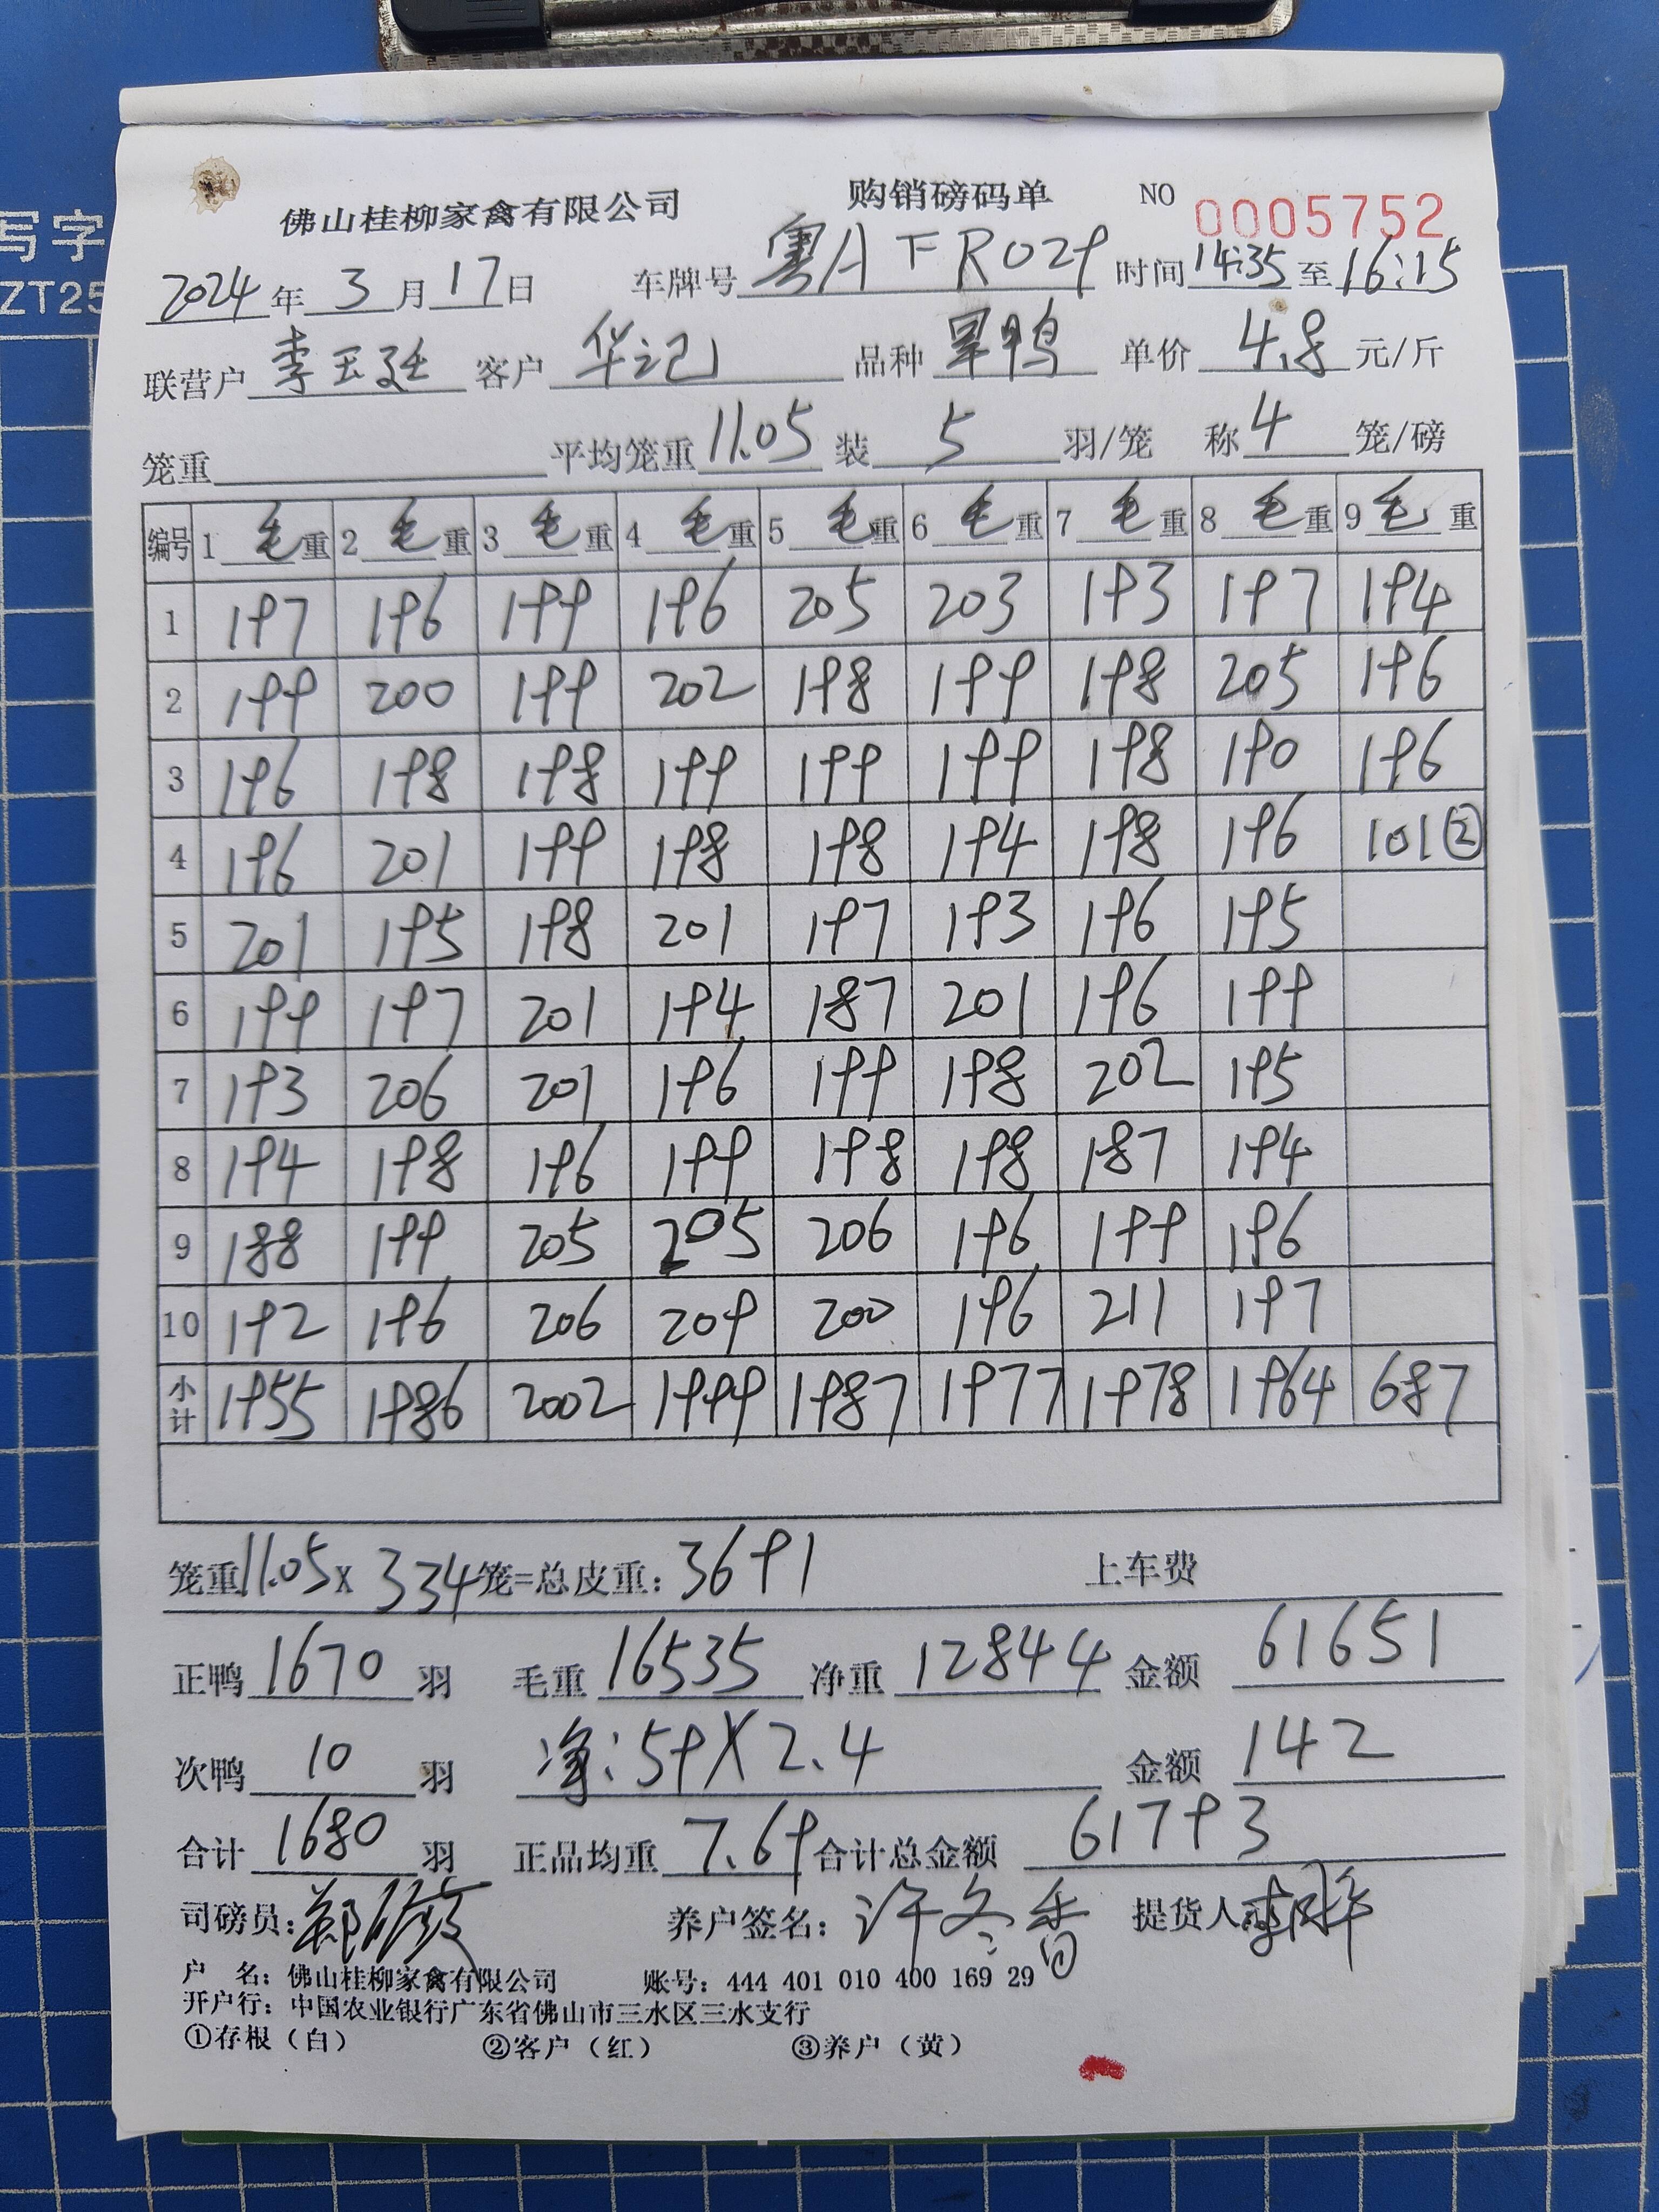 写字
ZT25
佛山桂柳家禽有限公司 购销磅码单 NO 0005752
2024年3月17日 车牌号粤AFR029 时间14:35至16:15
联营户李玉廷 客户华记 品种旱鸭 单价4.8元/斤
笼重 平均笼重11.05装5羽/笼 称4笼/磅
编号 1毛重 2毛重 3毛重 4毛重 5毛重 6毛重 7毛重 8毛重 9毛重
1 197 196 199 196 205 203 193 197 194
2 199 200 199 202 198 199 198 205 196
3 196 198 198 199 199 199 198 190 196
4 196 201 199 198 198 194 198 196 101②
5 201 195 198 201 197 193 196 195
6 199 197 201 194 187 201 196 199
7 193 206 201 196 199 198 202 195
8 194 198 196 199 198 198 187 194
9 188 199 205 205 206 196 199 196
10 192 196 206 209 200 196 211 197
小计 1955 1986 2002 1999 1987 1977 1978 1964 687
笼重11.05x334笼=总皮重：3691 上车费
正鸭1670羽 毛重16535净重12844金额61651
次鸭10羽 净:59X2.4 金额142
合计1680羽 正品均重7.69合计总金额61793
司磅员： 养户签名：许冬香 提货人
户 名：佛山桂柳家禽有限公司 账号：444 401 010 400 169 29
开户行：中国农业银行广东省佛山市三水区三水支行
①存根（白） ②客户（红） ③养户（黄）